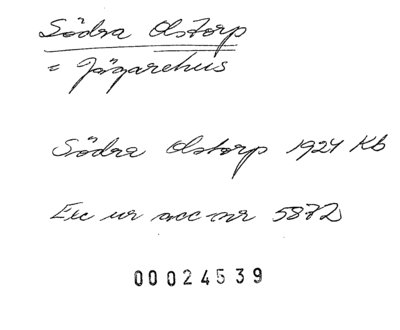 Södra Olstorp
= Jägarehus
Södra Olstorp 1924 Kb
Exc ur acc nr 5872
00024539